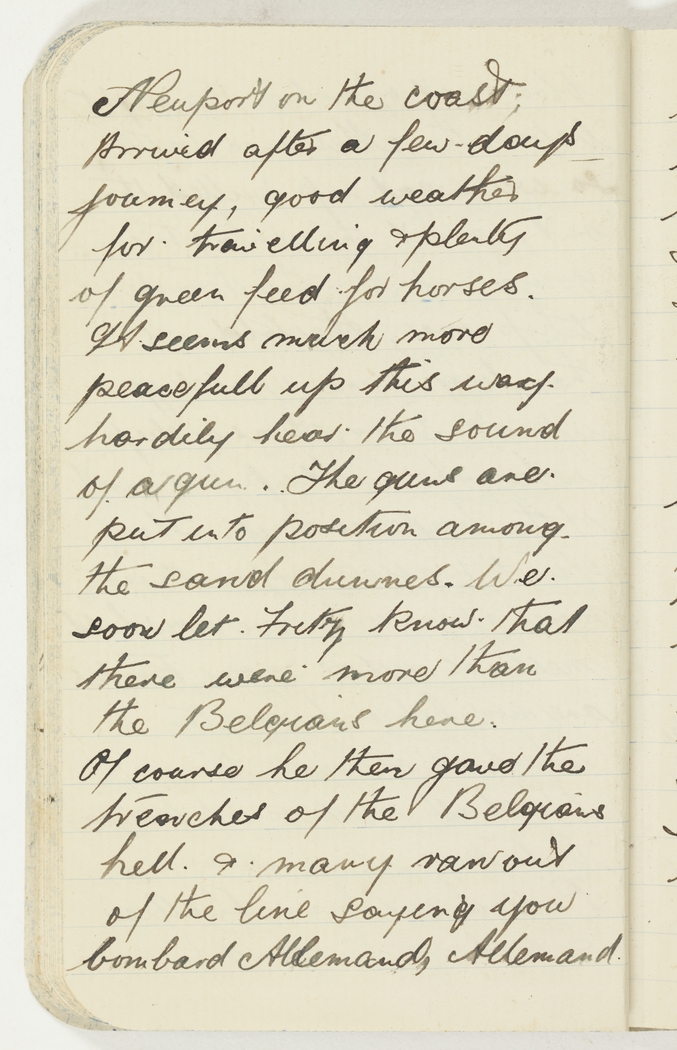 Neuport on the coast;
Arrived after a few days
journey, good weather
for travelling & plenty
of green feed for horses.
It seems much more
peacefull up this way.
hardily hear the sound
of a gun. The guns are
put into position among
the sand dunnes. We
soon let Fritz know that
there were more than
the Belgians here.
Of course he then gave the
trenches of the Belgians
hell. & many ran out
of the line saying you
bombard Allemand, Allemand.